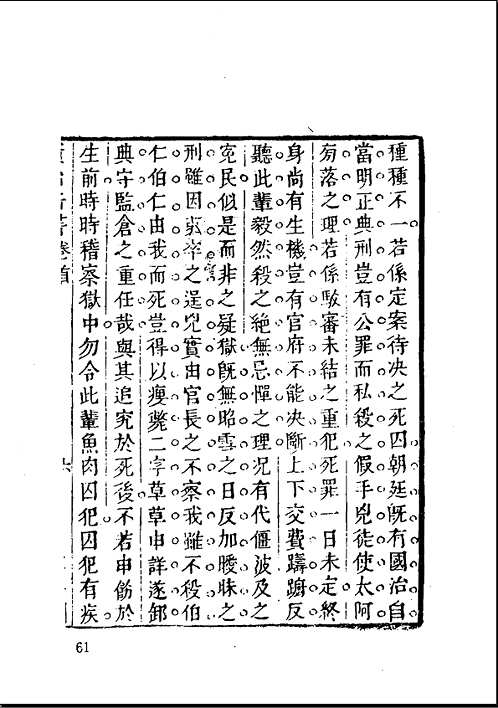 種種不一若係定案待决之死囚朝廷旣有國治自
當明正典刑豈有公罪而私殺之假手兇徒使太阿
旁落之理若係駁審未結之重犯死罪一日未定終
身尚有生機豈有官府不能决斷上下交費躊躕反
聽此輩毅然殺之絶無忌憚之理况有代僵波及之
寃民似是而非之疑獄旣無昭雪之日反加曖昧之
刑雖因之逞兇實由官長之不察我雖不殺伯
仁伯仁由我而死豈得以瘐斃二字草草申詳遂卸
典守監倉之重任哉與其追究於死後不若申飭於
生前時時稽察獄中勿令此輩魚肉囚犯囚犯有疾
卷首
61